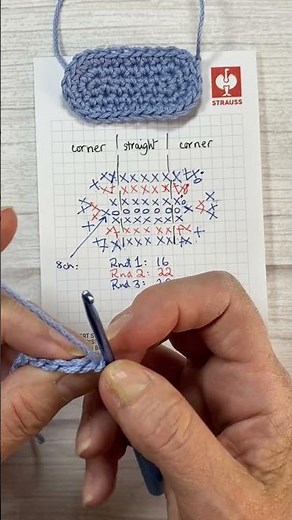 STRAUSS
corner straight corner
8ch:
Rnd 1: 16
Rnd 2: 22
Rnd 3: